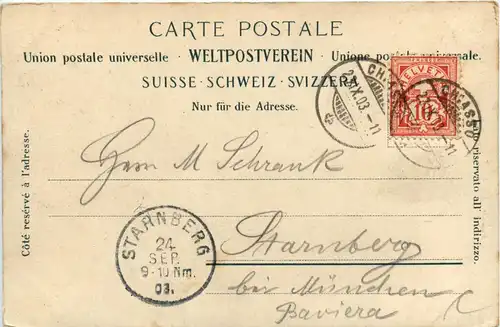 CARTE POSTALE
Union postale universelle · WELTPOSTVEREIN · Unione postale universale.
SUISSE · SCHWEIZ · SVIZZERA
Nur für die Adresse.
Côté reservé à l'adresse.
riservato all' indirizzo.
HELVETIA
10
23. IX. 03. - 11
CHIASSO
11
Herrn M Schrank
Starnberg
bei München
Baviera
STARNBERG
24
SEP.
9-10 Nm.
03.